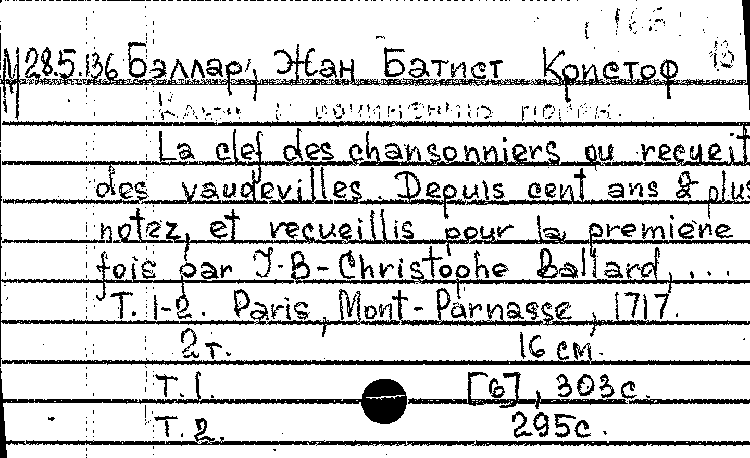 166
13
М28.5.136 Бэллар, Жан Батист Кристоф
Ключ к сочинению песен.
La clef des chansonniers ou recueit
des vaudevilles. Depuis cent ans & plus
notez, et recueillis pour la premiere
fois par J-B-Christophe Ballard, ...
T. 1-2. Paris, Mont-Parnasse, 1717.
2 т. 16 см.
Т. 1. [6], 303 с.
Т. 2. 295 с.